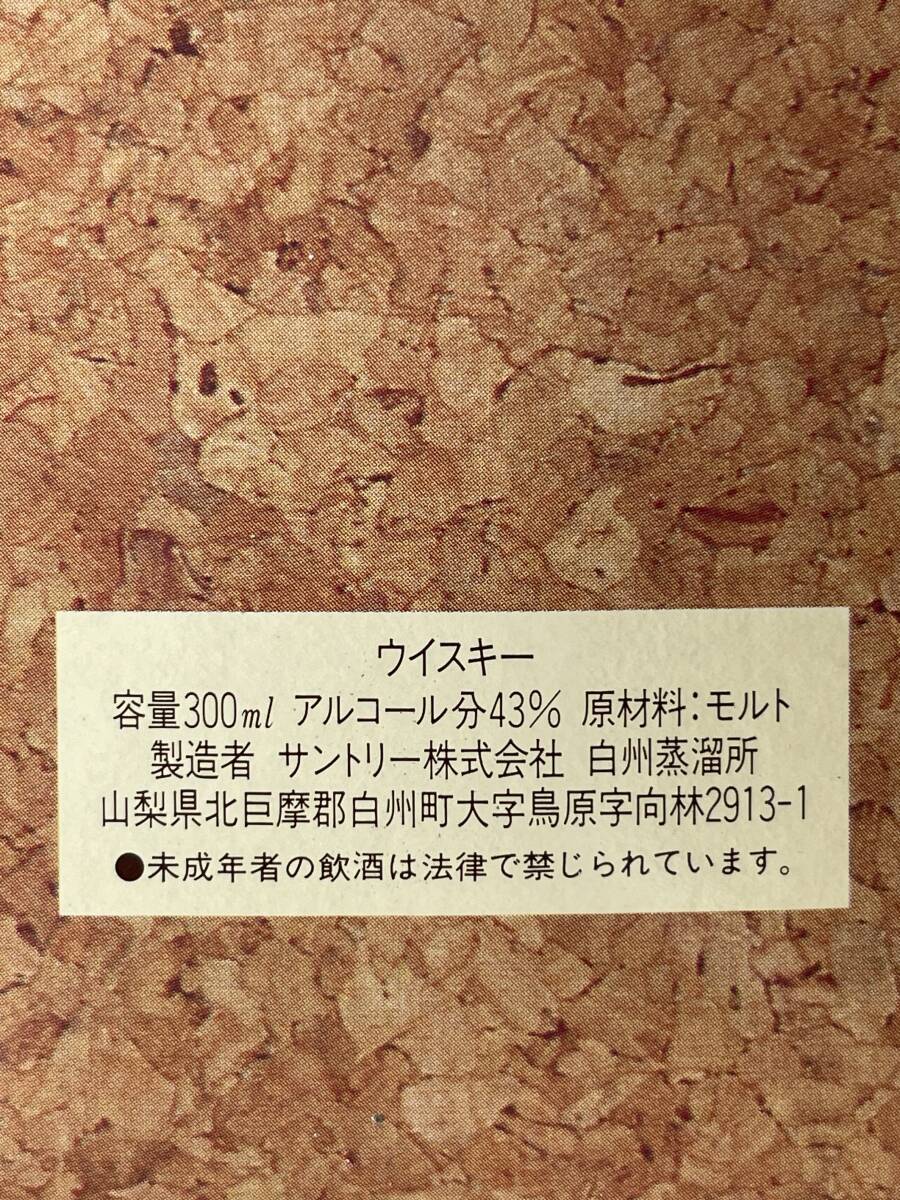 ウイスキー
容量300ml アルコール分43% 原材料：モルト
製造者 サントリー株式会社 白州蒸溜所
山梨県北巨摩郡白州町大字鳥原字向林2913-1
●未成年者の飲酒は法律で禁じられています。